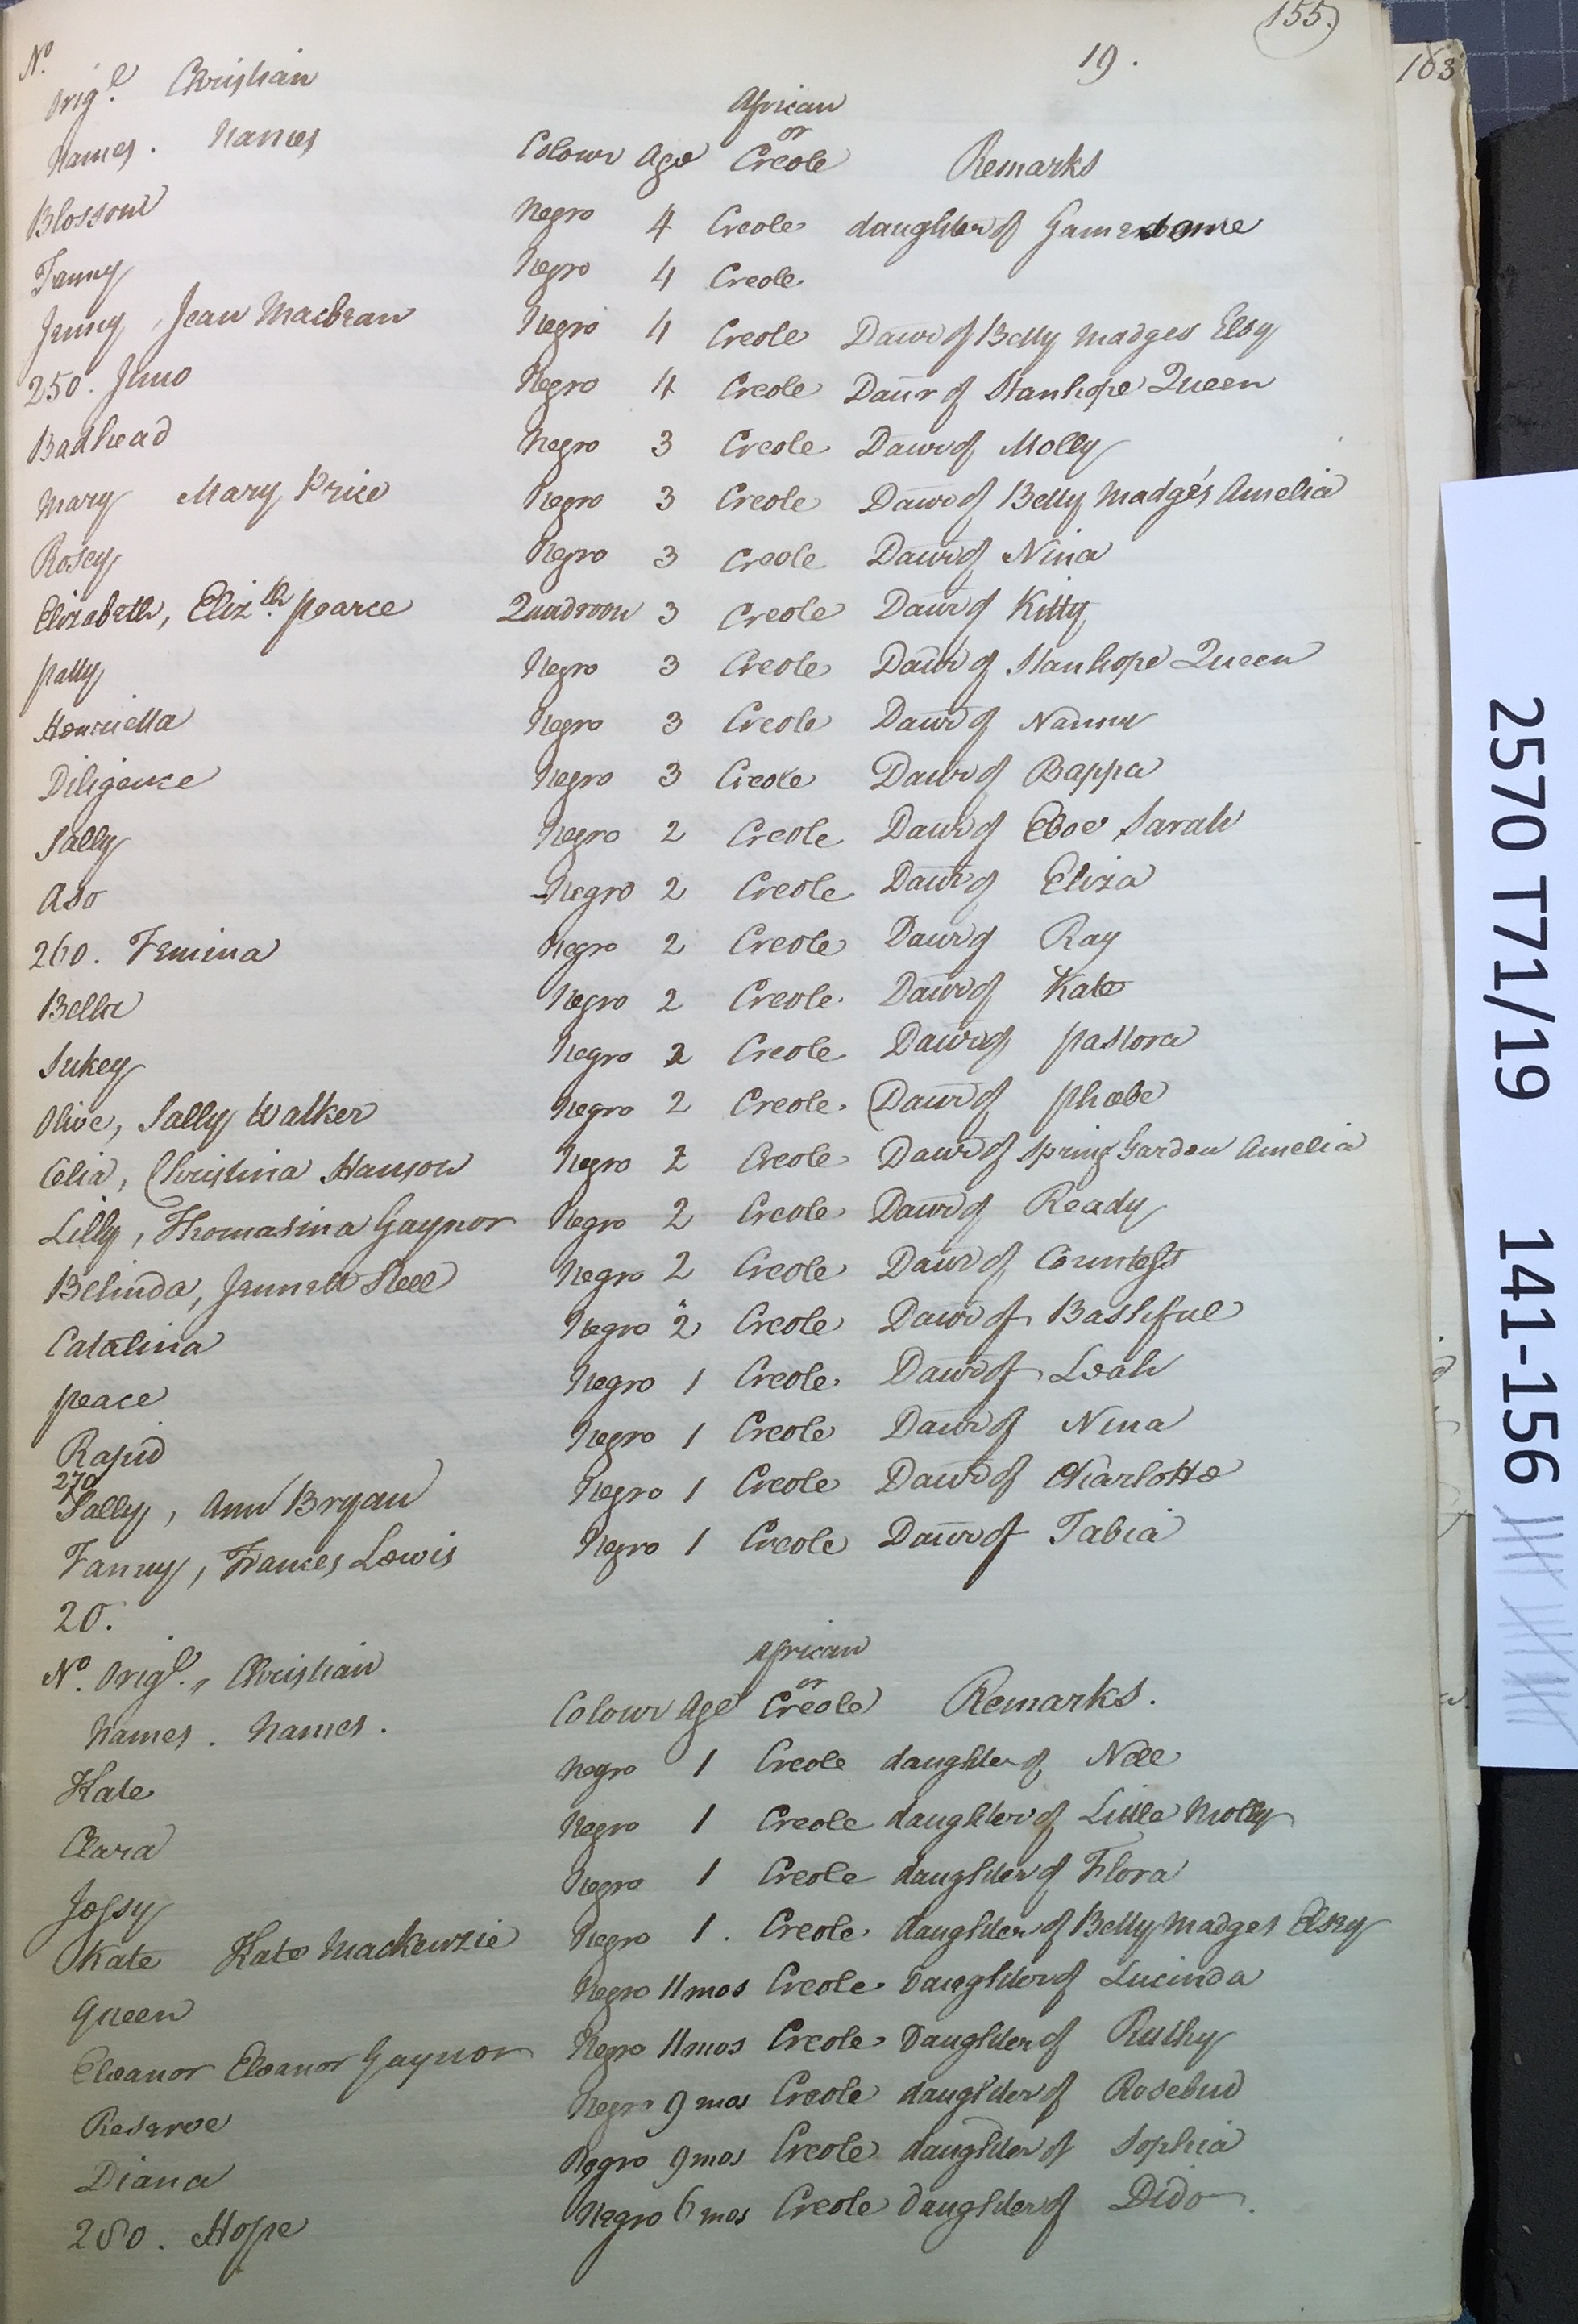 155.
163
19.
No. Origl. Christian African
Names. Names Colour Age or Creole Remarks
Blossom Negro 4 Creole daughter of Gamesome
Fanny Negro 4 Creole
Jenny, Jean Macbean Negro 4 Creole Daur of Betty Madges Elsy
250. Juno Negro 4 Creole Daur of Stanhope Queen
Badhead Negro 3 Creole Daur of Molly
Mary Mary Price Negro 3 Creole Daur of Betty Madge's Amelia
Rosey Negro 3 Creole Daur of Nina
Elizabeth, Elizth. Pearce Quadroon 3 Creole Daur of Kitty
Patty Negro 3 Creole Daur of Stanhope Queen
Henrietta Negro 3 Creole Daur of Nanny
Diligence Negro 3 Creole Daur of Bappa
Sally Negro 2 Creole Daur of Eboe Sarah
Aso Negro 2 Creole Daur of Eliza
260. Femina Negro 2 Creole Daur of Ray
Bella Negro 2 Creole Daur of Kate
Sukey Negro 2 Creole Daur of Pastora
Olive, Sally Walker Negro 2 Creole Daur of Phœbe
Celia, Christina Hanson Negro 2 Creole Daur of Spring Garden Amelia
Lilly, Thomasina Gaynor Negro 2 Creole Daur of Ready
Belinda, Jennett Stell Negro 2 Creole Daur of Countess
Catalina Negro 2 Creole Daur of Bashful
Peace Negro 1 Creole Daur of Leah
Rapid Negro 1 Creole Daur of Nina
270 Sally, Ann Bryan Negro 1 Creole Daur of Charlotte
Fanny, Frances Lewis Negro 1 Creole Daur of Tabia
20.
No. Origl., Christian African
Names. Names. Colour Age or Creole Remarks.
Kate Negro 1 Creole daughter of Nell
Clara Negro 1 Creole daughter of Little Molly
Jessy Negro 1 Creole daughter of Flora
Kate Kate Mackenzie Negro 1. Creole daughter of Betty Madges Elsey
Queen Negro 11 mos Creole Daughter of Lucinda
Eleanor Eleanor Gaynor Negro 11 mos Creole Daughter of Ruthy
Reserve Negro 9 mos Creole daughter of Rosebud
Diana Negro 9 mos Creole daughter of Sophia
280. Hope Negro 6 mos Creole Daughter of Dido.
2570 T71/19 141-156